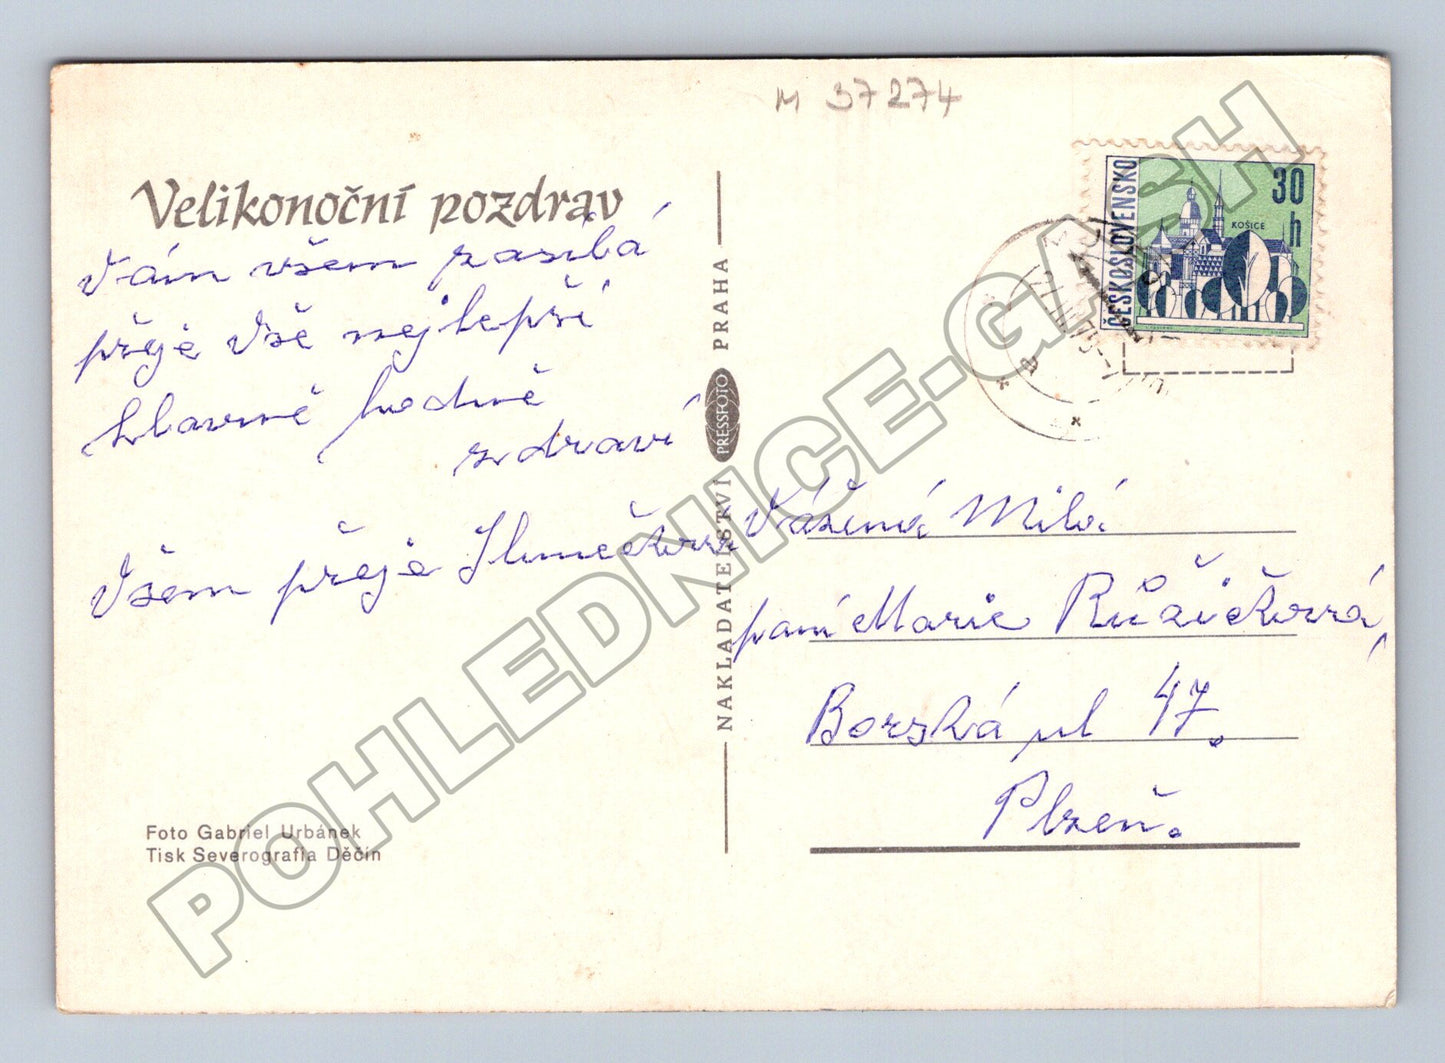 M 37274
Velikonoční pozdrav
Vám všem zasílá
přeje vše nejlepší
hlavně hodně
zdraví
Všem přeje
NAKLADATELSTVÍ PRESSFOTO PRAHA
ČESKOSLOVENSKO
30
h
KOŠICE
Vážená Milá
paní Marie Růžičková,
Borská ul 47.
Plzeň.
Foto Gabriel Urbánek
Tisk Severografia Děčín
POHLEDNICE-GALASH